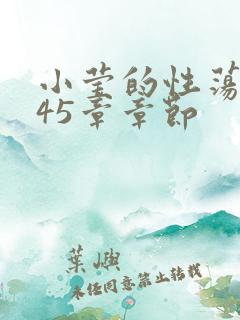 小莹的性荡
45章章节
葉嶼
未经同意禁止转载